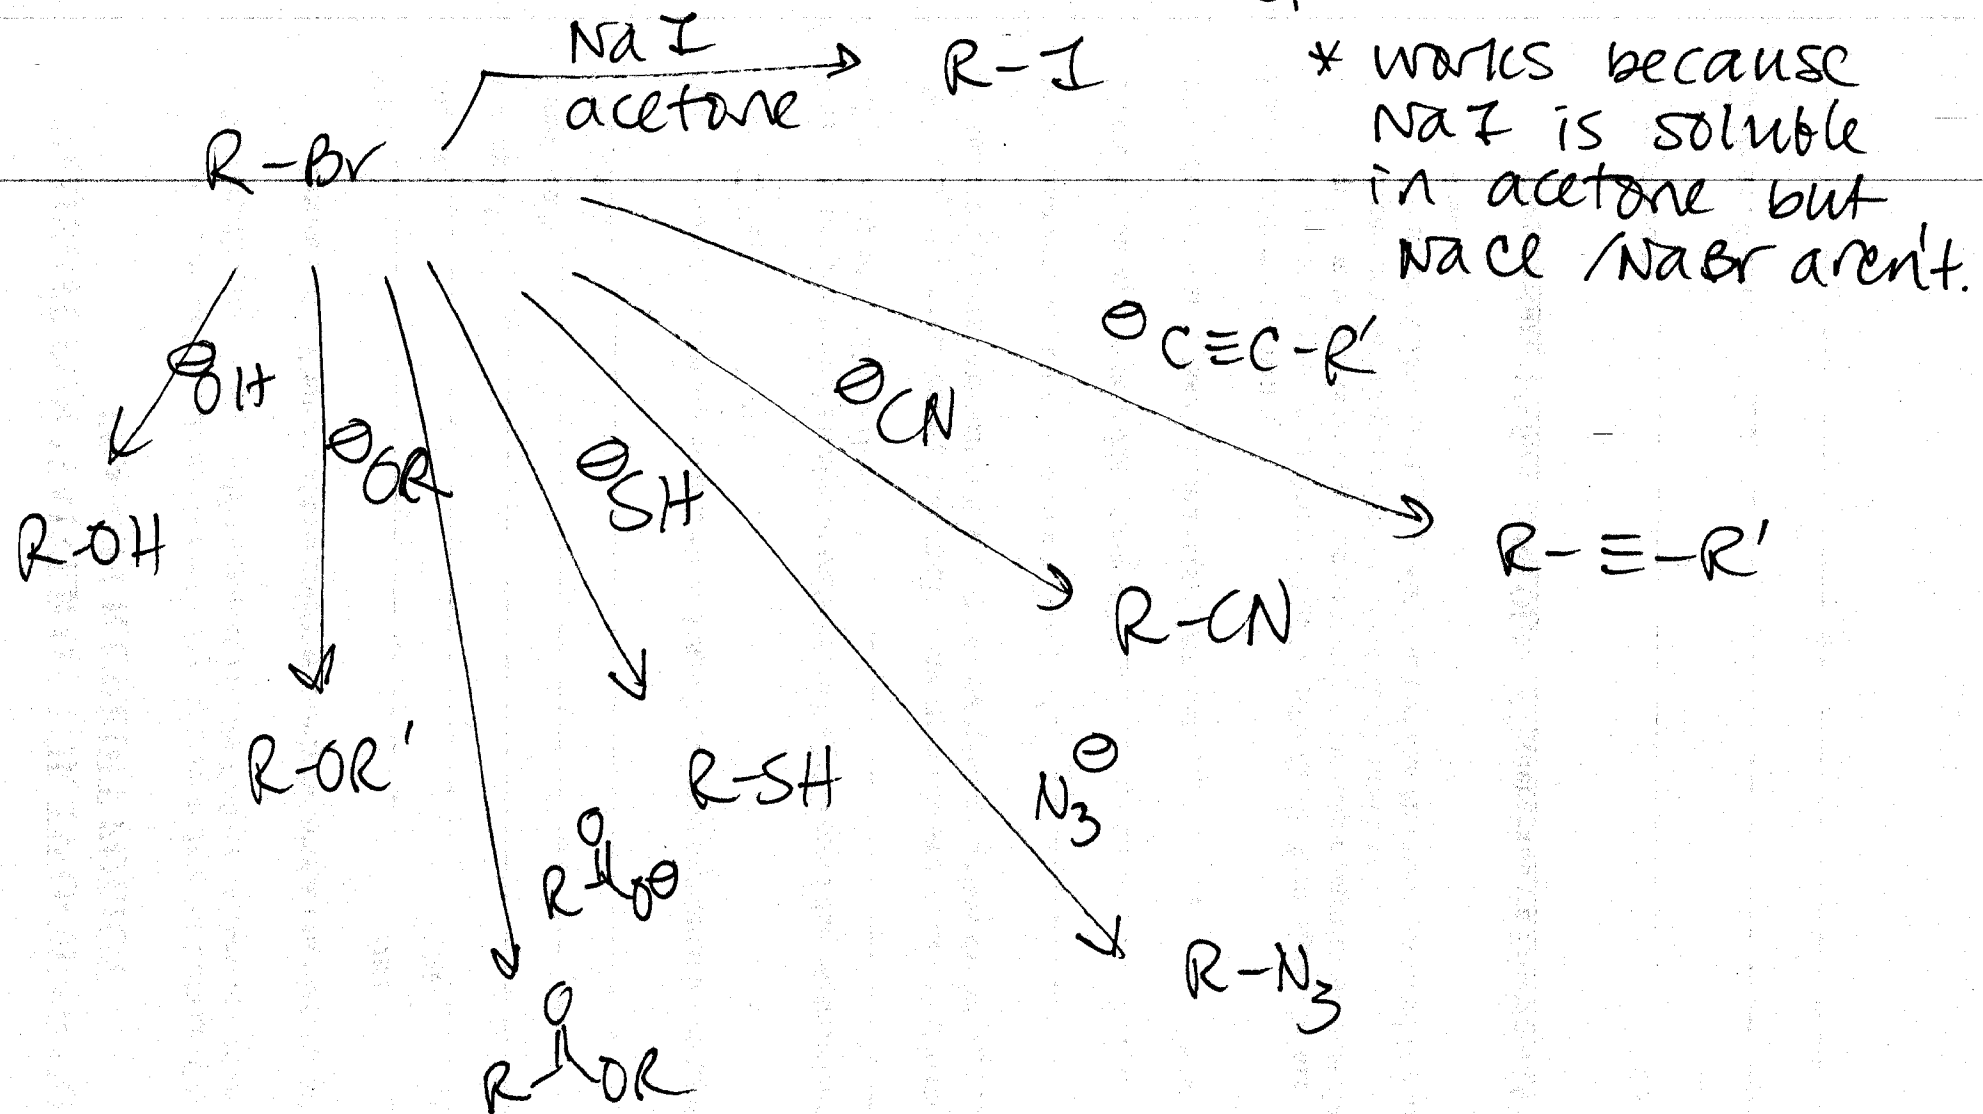 NaI
acetone
R-I
* works because
NaI is soluble
in acetone but
NaCl /NaBr aren't.
R-Br
⊖OH
⊖OR
⊖SH
⊖CN
⊖C≡C-R'
R-OH
R-OR'
R-SH
R-CN
R-≡-R'
N3⊖
R-N3
O
R O⊖
O
R OR